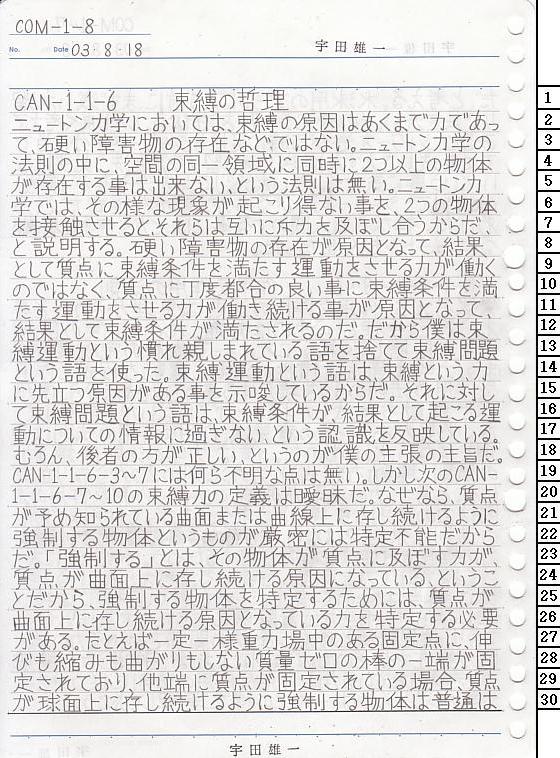 COM-1-8
No.
Date 03 8 18
宇田雄一
CAN-1-1-6 束縛の哲理
ニュートン力学においては、束縛の原因はあくまで力であっ
て、硬い障害物の存在などではない。ニュートン力学の
法則の中に、空間の同一領域に同時に2つ以上の物体
が存在する事は出来ない、という法則は無い。ニュートン力
学では、その様な現象が起こり得ない事を、2つの物体
を接触させると、それらは互いに斥力を及ぼし合うからだ、
と説明する。硬い障害物の存在が原因となって、結果
として質点に束縛条件を満たす運動をさせる力が働く
のではなく、質点に丁度都合の良い事に束縛条件を満
たす運動をさせる力が働き続ける事が原因となって、
結果として束縛条件が満たされるのだ。だから僕は束
縛運動という慣れ親しまれている語を捨てて束縛問題
という語を使った。束縛運動という語は、束縛という、力
に先立つ原因がある事を示唆しているからだ。それに対し
て束縛問題という語は、束縛条件が、結果として起こる運
動についての情報に過ぎない、という認識を反映している。
むろん、後者の方が正しい、というのが僕の主張の主旨だ。
CAN-1-1-6-3~7には何ら不明な点は無い。しかし次のCAN-
1-1-6-7~10の束縛力の定義は曖昧だ。なぜなら、質点
が予め知られている曲面または曲線上に存し続けるように
強制する物体というものが厳密には特定不能だから
だ。「強制する」とは、その物体が質点に及ぼす力が、
質点が曲面上に存し続ける原因になっている、というこ
とだから、強制する物体を特定するためには、質点が
曲面上に存し続ける原因となっている力を特定する必要
がある。たとえば一定一様重力場中のある固定点に、伸
びも縮みも曲がりもしない質量ゼロの棒の一端が固
定されており、他端に質点が固定されている場合、質点
が球面上に存し続けるように強制する物体は普通は
宇田雄一
1
2
3
4
5
6
7
8
9
10
11
12
13
14
15
16
17
18
19
20
21
22
23
24
25
26
27
28
29
30